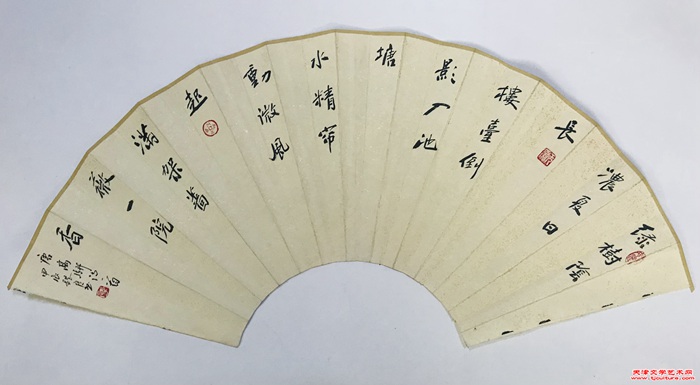 緑樹陰
濃夏日
長
樓臺倒
影入池
塘
水精帘
動微風
起
滿架薔
薇一院
香
唐高駢詩
天津文学艺术网
www.tjculture.com